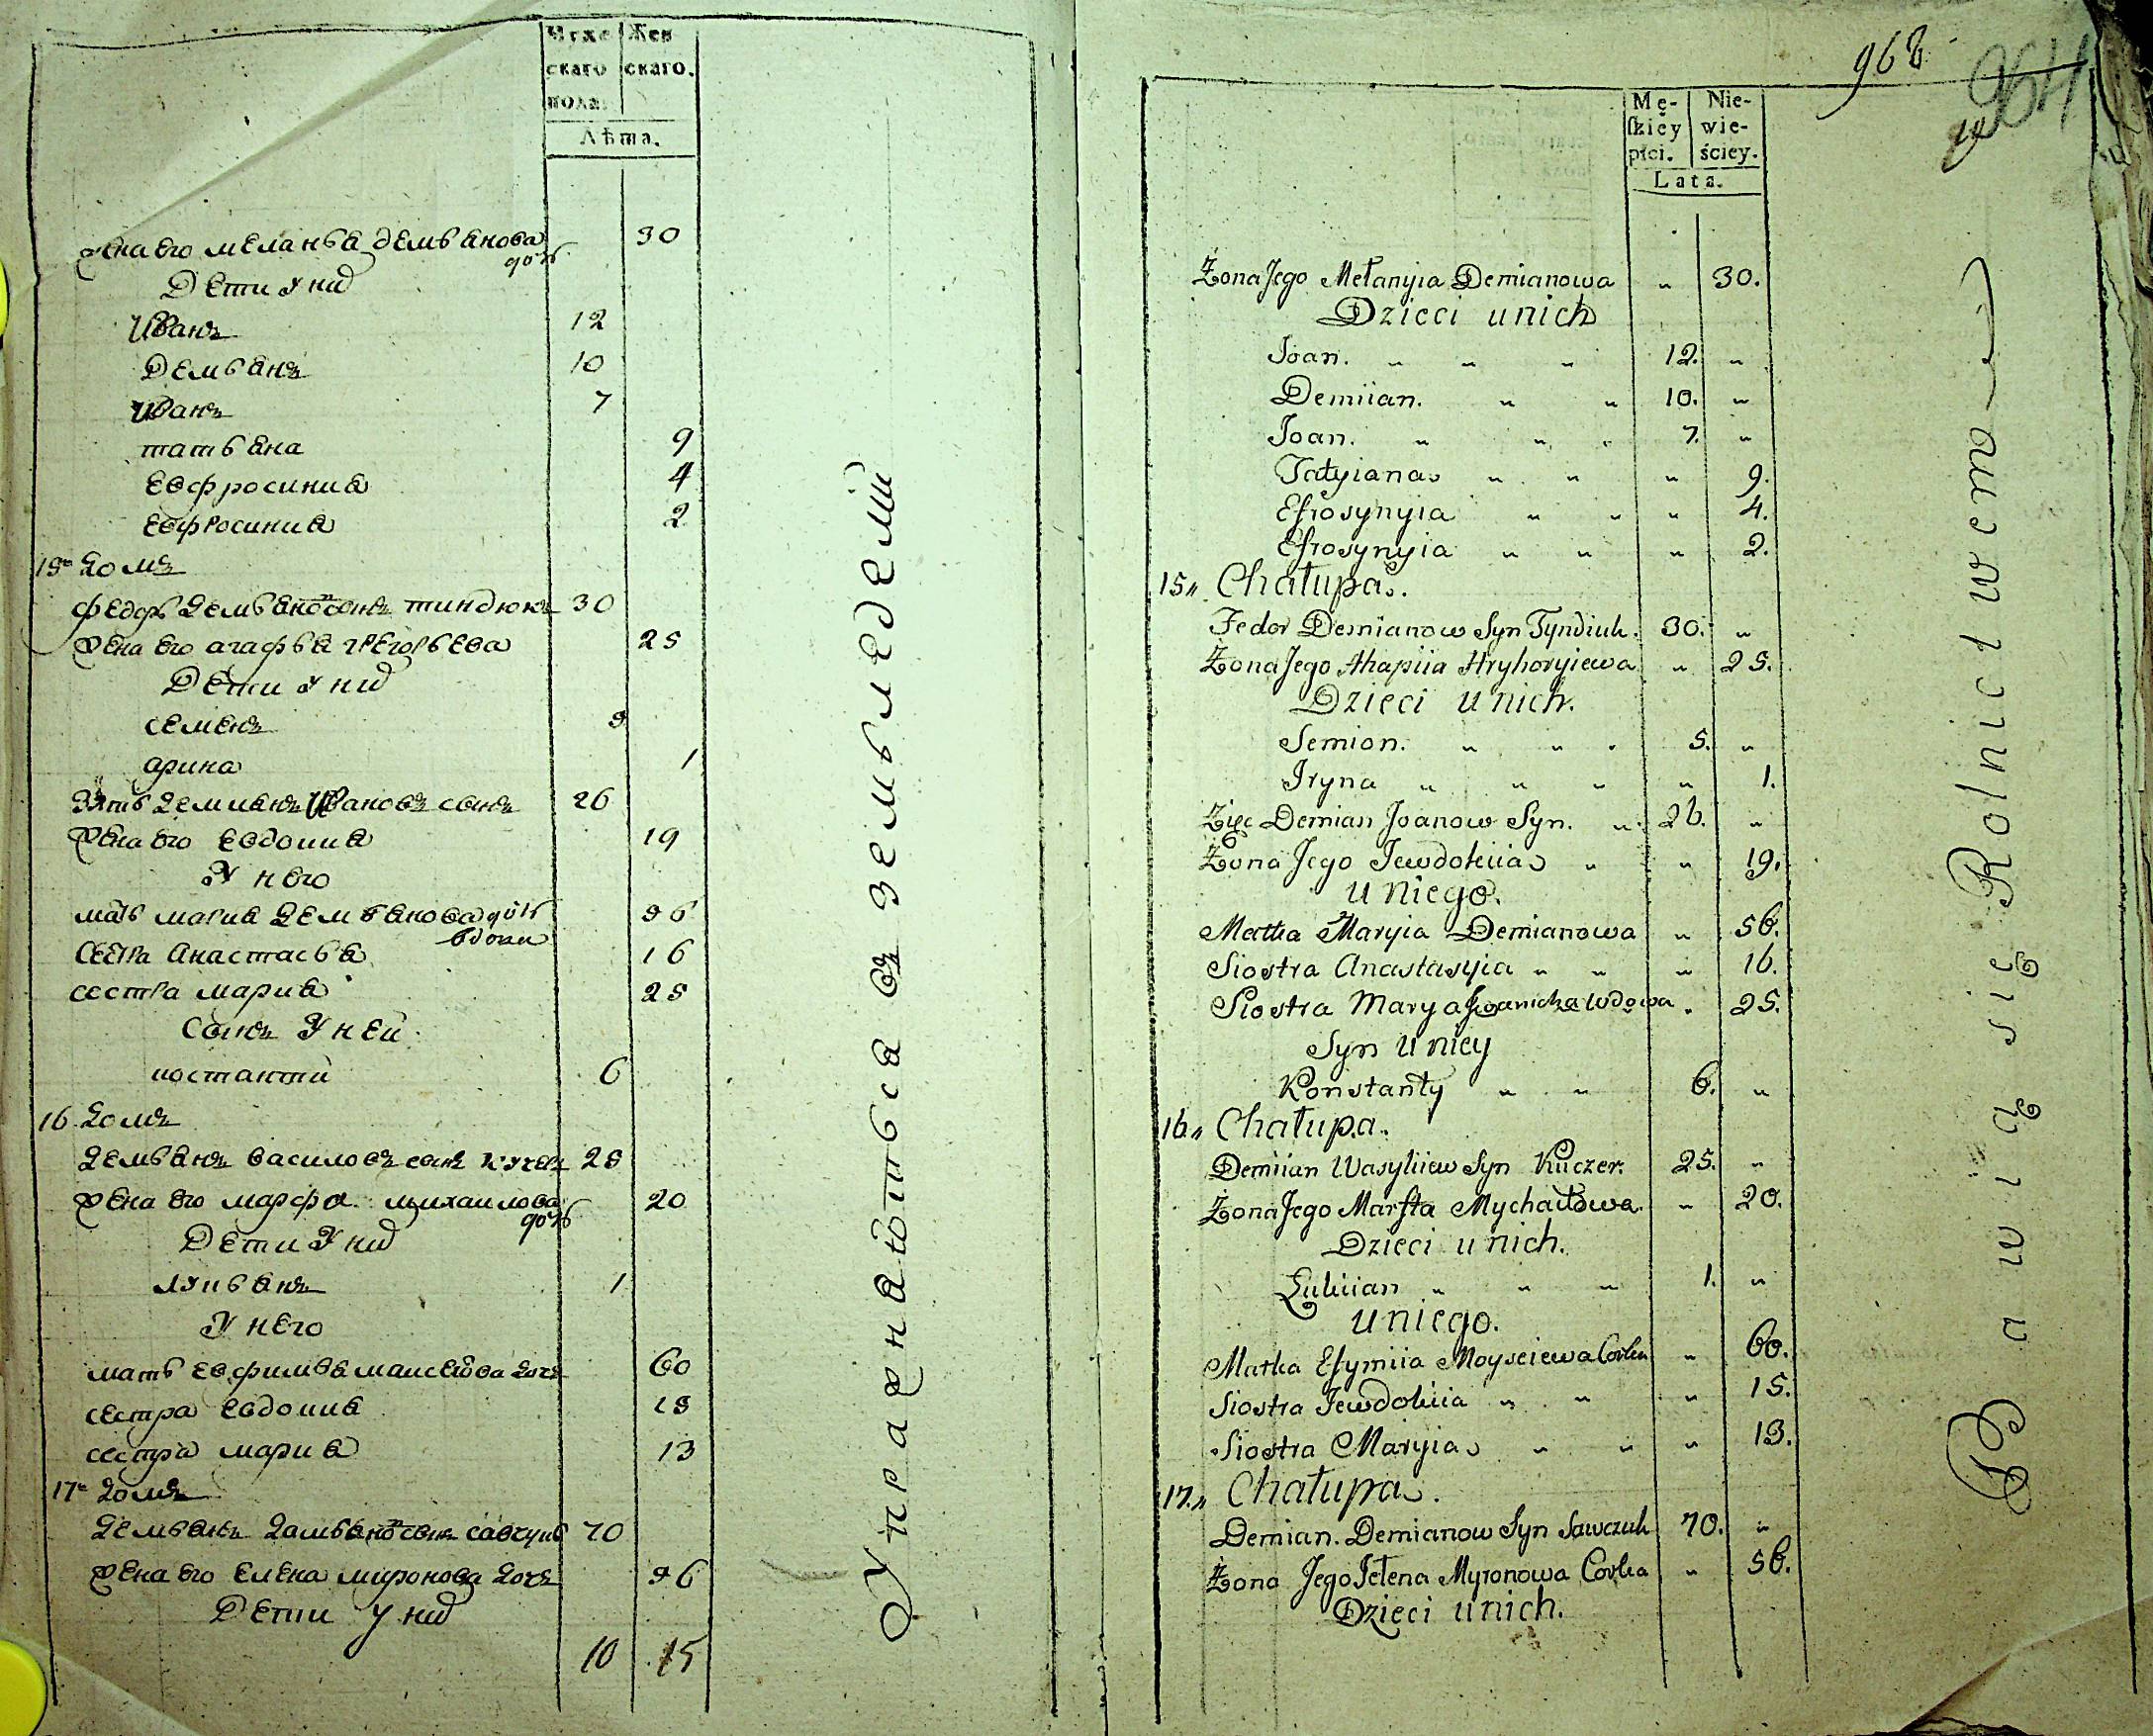 Мужескаго пола.
Женскаго.
Лѣта.
жена его меланья демьянова дочь 30
Дети у них
Иванъ 12
Демьянъ 10
Иванъ 7
татьяна 9
евфросиния 4
евфросиния 2
15 домъ
федоръ демьяновъ сынъ тиндюкъ 30
жена его агафья грегорьева 25
Дети у них
семенъ 5
арина 1
зять демиянъ Ивановъ сынъ 26
жена его евдокия 19
У него
мать мария демьянова дочь вдова 56
сестра анастасья 16
сестра мария 25
Сынъ у ней
костантий 6
16 домъ
демьянъ василовъ сынъ кучеръ 25
жена его марфа михаилова дочь 20
Дети у них
лукьянъ 1
У него
мать евфимья моисеева дочь 60
сестра евдокия 15
сестра мария 13
17 домъ
демьянъ дамьяновъ сынъ савчукъ 70
жена его елена миронова дочь 56
Дети у них
10 15
Упражнаються въ земьледелій
968
964
Mę-skiéy płci.
Nie-wie-ściey.
Lata.
Żona Jego Mełanyia Demianowa „ 30.
Dzieci u nich
Joan. „ „ „ 12. „
Demiian. „ „ 10. „
Joan. „ „ „ 7. „
Tatyiana „ „ „ 9.
Efrosynyia „ „ „ 4.
Efrosynyia „ „ „ 2.
15„ Chałupa.
Fedor Demianow Syn Tyndiuk. 30. „
Żona Jego Ahapiia Hryhoryiewa „ 25.
Dzieci u nich.
Semion. „ „ „ 5. „
Iryna „ „ „ „ 1.
Zięc Demian Joanow Syn. „ 26. „
Żona Jego Jewdokiia „ „ 19.
u niego.
Matka Maryia Demianowa „ 56.
Siostra Anastasyia „ „ „ 16.
Siostra Marya Iwanicka wdowa „ 25.
Syn u niey
Konstanty „ „ 6. „
16„ Chałupa.
Demiian Wasyliiew Syn Kuczer. 25. „
Żona Jego Marfta Mychaiłowa „ 20.
Dzieci u nich.
Łukiian „ „ „ 1. „
u niego.
Matka Efymiia Moysciewa Corka „ 60.
Siostra Jewdokiia „ „ „ 15.
Siostra Maryia „ „ „ 13.
17„ Chałupa.
Demian. Demianow Syn Sawczuk 70. „
Żona Jego Jełena Myronowa Corka „ 56.
Dzieci u nich.
Bawią się Rolnictwem